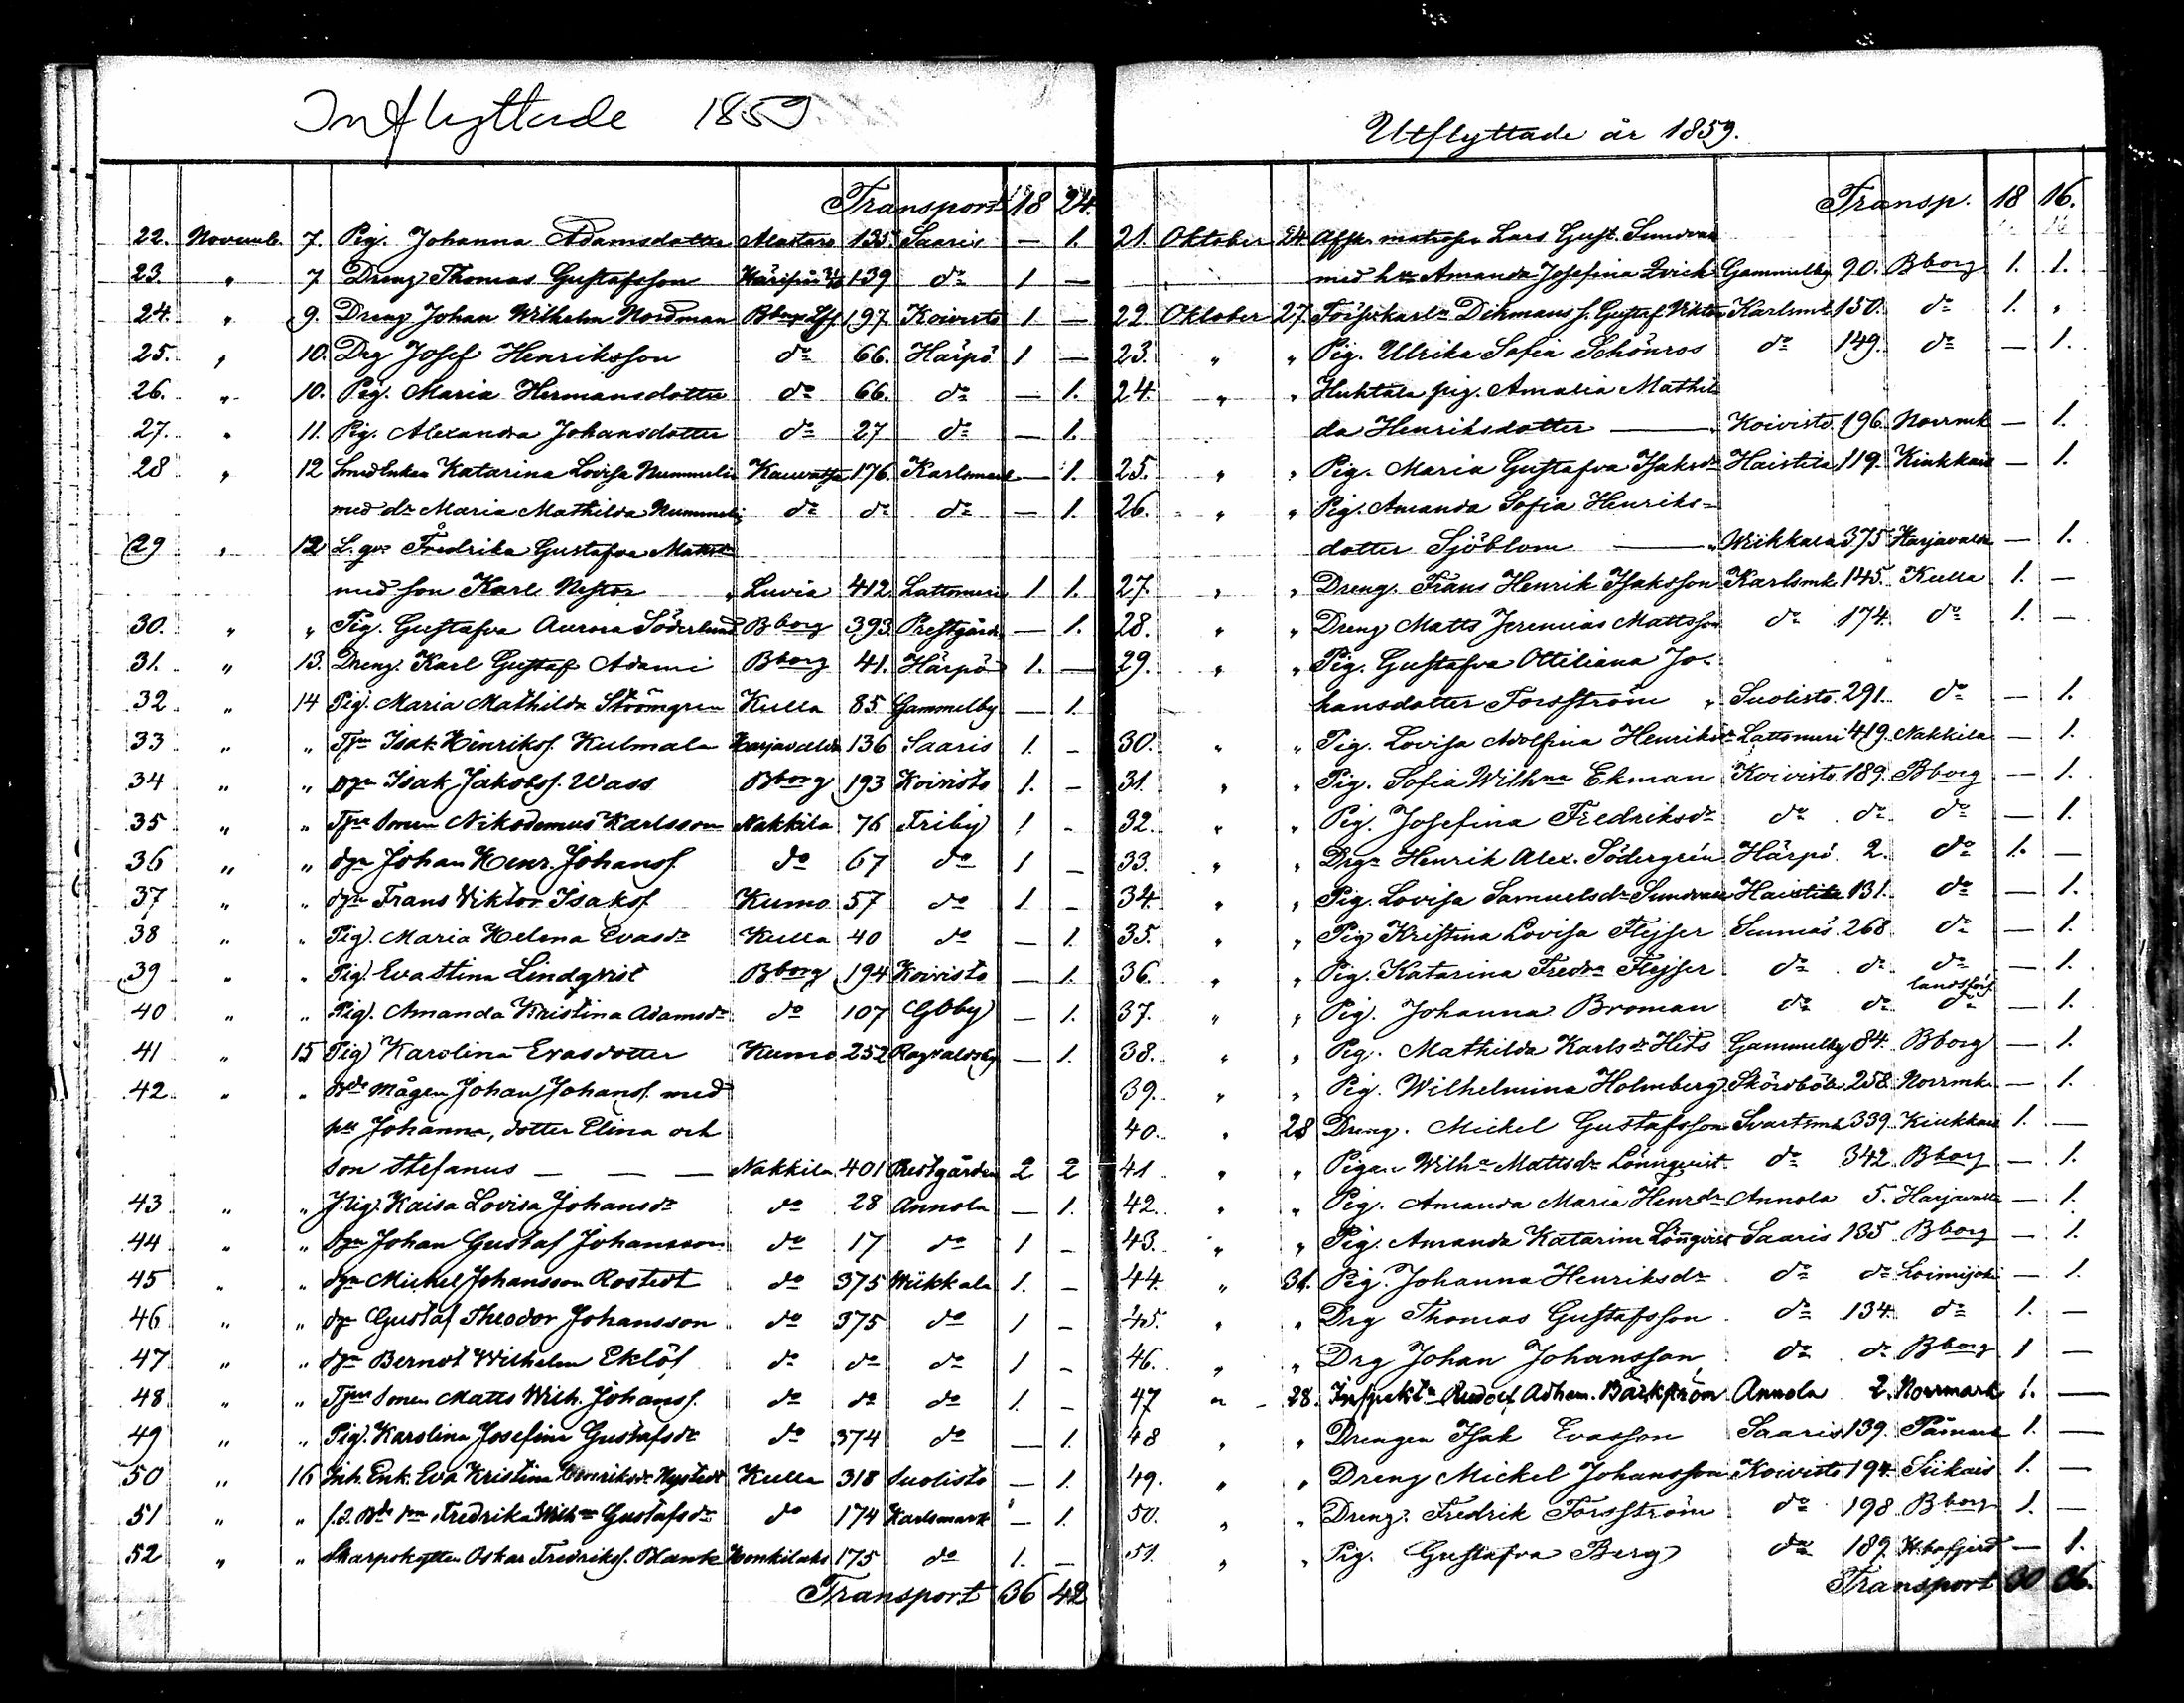 Inflyttade 1859
Transport 18 24.
22. Novemb. 7. Pig. Johanna Adamsdotter Alastaro 135 Saaris — 1.
23. " 7 Dreng Thomas Gustafsson 139 do 1 —
24. " 9. Dreng Johan Wilhelm Nordman Bborgs Lff. 197. Koivisto 1. —
25. " 10. Drg Josef Henriksson do 66. Härpö 1 —
26. " 10. Pig. Maria Hermansdotter do 66. do — 1.
27. " 11. Pig. Alexandra Johansdotter do 27 do — 1.
28 " 12 Smedenkan Katarina Lovisa Nummelin Kauvatsa 176. Karlsmark — 1.
med dr Maria Mathilda Nummelin do do do — 1.
29 " 12 L. qv. Fredrika Gustafva Mattsdr
med son Karl Nestor " Luvia 412 Lattomeri 1 1.
30. " " Pig. Gustafva Aurora Söderlund Bborg 393 Prestgård — 1.
31. " 13. Dreng. Karl Gustaf Adami Bborg 41. Härpö 1. —
32 " 14 Pig. Maria Mathilda Strömgren Kulla 85 Gammelby — 1.
33 " " Tjm Isak Henrikss. Kulmala Harjavalda 136 Saaris 1. -
34 " " Dgn Isak Jakobss. Wass Bborg 193 Koivisto 1. -
35 " " Tjm sonen Nikodemus Karlsson Nakkila 76 Friby 1 -
36 " " dgn Johan Henr. Johanss. do 67 do 1 -
37 " " dgn Frans Viktor Isakss. Kumo 57 do 1 -
38 " " Pig. Maria Helena Evasdr Kulla 40 do — 1.
39 " " Pig. Eva Stina Lindqvist Bborg 194 Koivisto — 1.
40 " " Pig. Amanda Kristina Adamsdr do 107 Gbby — 1.
41 " 15 Pig. Karolina Evasdotter Kumo 252 Ragvaldsby — 1.
42 " " Bde mågen Johan Johanss. med
hu Johanna, dotter Elina och
son Stefanus — — — Nakkila 401 Prestgården 2 2
43 " " Pig. Kaisa Lovisa Johansdr do 28 Annola — 1.
44 " " dgn Johan Gustaf Johansson do 17 do 1 -
45 " " dgn Michel Johansson Rostedt do 375 Wiikkala 1. -
46 " " dgn Gustaf Theodor Johansson do 375 do 1 -
47 " " dgn Berndt Wilhelm Eklöf do do do 1 -
48 " " Tjm sonen Matts Wilh. Johanss. do do do 1. -
49 " " Pig. Karolina Josefina Gustafsdr do 374 do — 1.
50 " 16 Inh. Enk. Eva Kristina Henriksdr Nystedt Kulla 318 Suolisto — 1.
51 " " f.d. Bde Fredrika Wilhna Gustafsdr do 174 Karlsmark — 1.
52 " " Skarpskytten Oskar Fredrikss. Blank Honkilaks 175 do 1. —
Transport 36 42
Utflyttade år 1859.
Transp. 18 16.
21. Oktober 24. Affsk. matrosen Lars Gust. Sundvall
med hu Amanda Josefina Qvick Gammelby 90. Bborg 1. 1.
22. Oktober 27. Dikmans s. Gustaf Viktor Karlsmk 150. do 1. "
23. " " Pig. Ulrika Sofia Schönros do 149. do — 1.
24. " " Huhtala pig. Amalia Mathil
da Henriksdotter — Koivisto 196. Norrmk — 1.
25. " " Pig. Maria Gustafva Isaksdr Haistila 119. Kiukkais — 1.
26. " " Pig. Amanda Sofia Henriks=
dotter Sjöblom — Wiikkala 375 Harjavalda — 1.
27. " " Dreng. Frans Henrik Isaksson Karlsmk 145. Kulla 1. —
28. " " Dreng Matts Jeremias Mattsson do 174. do 1. —
29. " " Pig. Gustafva Ottiliana Jo-
hansdotter Forsström " Suolisto 291. do — 1.
30. " " Pig. Lovisa Adolfina Henriksdr Lattomeri 419. Nakkila — 1.
31. " " Pig. Sofia Wilhna Ekman Koivisto 189. Bborg — 1.
32. " " Pig. Josefina Fredriksdr do do do — 1.
33. " " Drgn Henrik Alex. Södergrén Härpö 2. do 1. —
34. " " Pig. Lovisa Samuelsdr Sundvall Haistila 131. do — 1.
35. " " Pig Kristina Lovisa Flejser Sunnäs 268 do — 1.
36. " " Pig. Katarina Fredra Flejser do do do — 1.
37. " " Pig. Johanna Broman do do landsförs. do — 1.
38. " " Pig. Mathilda Karlsdr Hits Gammelby 84. Bborg — 1.
39. " " Pig. Wilhelmina Holmberg Skördböle 258. Norrmk. — 1.
40. " 28 Dreng. Mickel Gustafsson Svartsmk 339. Kiukkais 1. —
41 " " Pigan Wilha Mattsdr Lönnqvist do 342. Bborg — 1.
42. " " Pig. Amanda Maria Henrdr Annola 5. Harjavalla — 1.
43. " " Pig. Amanda Katarina Lönqvist Saaris 135 Bborg — 1.
44. " 31. Pig. Johanna Henriksdr do do Loimijoki — 1.
45. " " Drg Thomas Gustafsson do 134. do 1. —
46. " " Drg Johan Johansson do do Bborg 1 —
47 " 28. Inspektr Rudolf Adhem. Bäckström Annola 2. Norrmark 1. —
48 " " Drengen Isak Evasson Saaris 139. Påmark 1. —
49. " " Dreng Mickel Johansson Koivisto 194. Siikais 1. —
50. " " Dreng. Fredrik Forsström do 198 Bborg 1. —
51. " " Pig. Gustafva Berg do 189. Hvbofjerd — 1.
Transport 30 36.